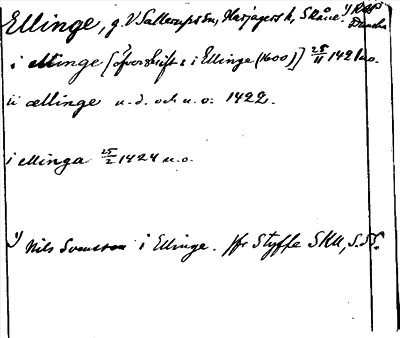 Ellinge, g. V Sallerups sn, Harjagers h, Skåne. 1) RAP
Danska
i ellinge [öfverskrift: i Ellinge (1600)] 25/11 1421 u.o.
ii ællinge u. d. och u. o. 1422.
i ellinga 25/2 1424 u.o.
1) Nils Svensson i Ellinge. Jfr Styffe SKU, s. 55.